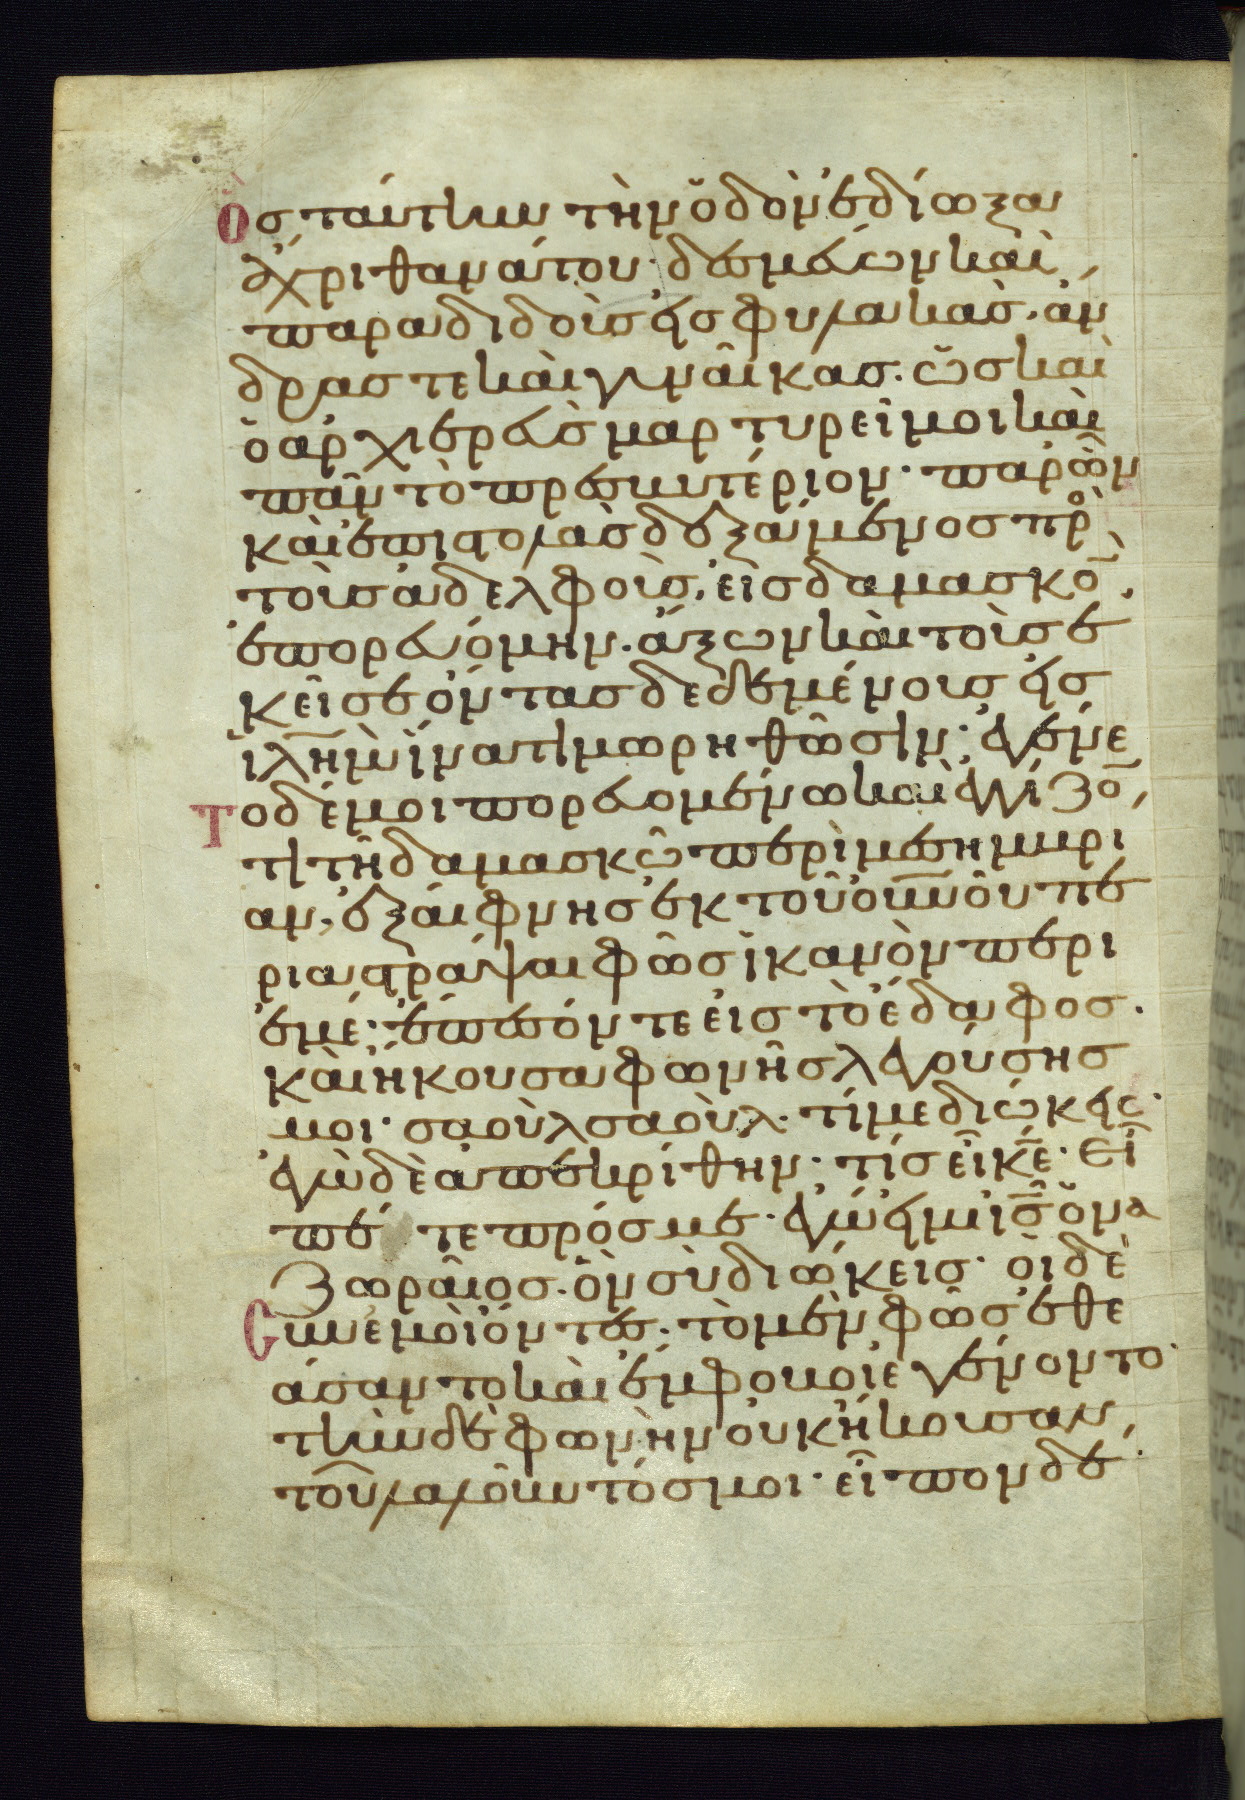 Ὃς ταύτην τὴν ὁδὸν ἐδίωξα
ἄχρι θανάτου· δεσμεύων καὶ
παραδιδοὺς εἰς φυλακὰς· ἄν
δρας τε καὶ γυναῖκας· ὡς καὶ
ὁ ἀρχιερεὺς μαρτυρεῖ μοι καὶ
πᾶν τὸ πρεσβυτέριον· παρ' ὧν
καὶ ἐπιστολὰς δεξάμενος πρὸ
τοὺς ἀδελφοὺς, εἰς δαμασκο̅
ἐπορευόμην· ἄξων καὶ τοὺς ἐ
κεῖσε ὄντας δεδεμένους εἰς
ιλη̅μ ἵνα τιμωρηθῶσιν· ἐγένε
Το δέ μοι πορευομένω καὶ ἐγγίζο̅
τι τῆ δαμασκῶ περὶ μεσημβρί
αν, ἐξαίφνης ἐκ τοῦ ου̅νου πε
ριαστράψαι φῶς ἱκανὸν περὶ
ἐμέ· ἔπεσόν τε εἰς τὸ ἔδαφος·
καὶ ἤκουσα φωνῆς λεγούσης
μοι· σαοὺλ σαοὺλ· τί με διώκεις·
ἐγὼ δὲ ἀπεκρίθην· τίς εἶ κ̅ε· εἶ
πέ τε πρός με· ἐγώ εἰμι ι̅ς ὁ να
ζωραῖος· ὃν σὺ διώκεις· οἱ δὲ
Cὺν ἐμοὶ ὄντες· τὸ μὲν φῶς ἐθε
άσαντο καὶ ἔμφοβοι ἐγένοντο·
τὴν δὲ φωνὴν οὐκ ἤκουσαν,
τοῦ λαλοῦντός μοι· εἶπον δέ